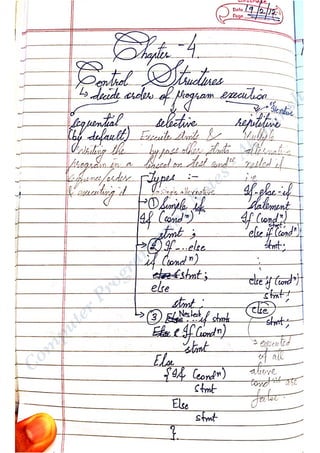 Date 19/2/12
Page
Chapter - 4
Control Structures
↳ decide order of program execution
sequential selective repetitive
(by default) Execute stmts & Multiple
writing the bypass other stmts alternative
program in a based on test condⁿ nested if
sequence/order Types :- i.e
& executing it → single alternative If-else-if
① Simple if statement
If (condⁿ) If (condⁿ)
stmt ; stmt;
② If ... else else if (condⁿ)
if (condⁿ) stmt;
stmt ; :
else else if (condⁿ)
stmt . stmt;
③ Nested if stmt else
If (condⁿ) stmt;
stmt executed
Else if all
{ If (condⁿ) above
stmt condⁿ are
Else false.
stmt
}.
Computer Progra